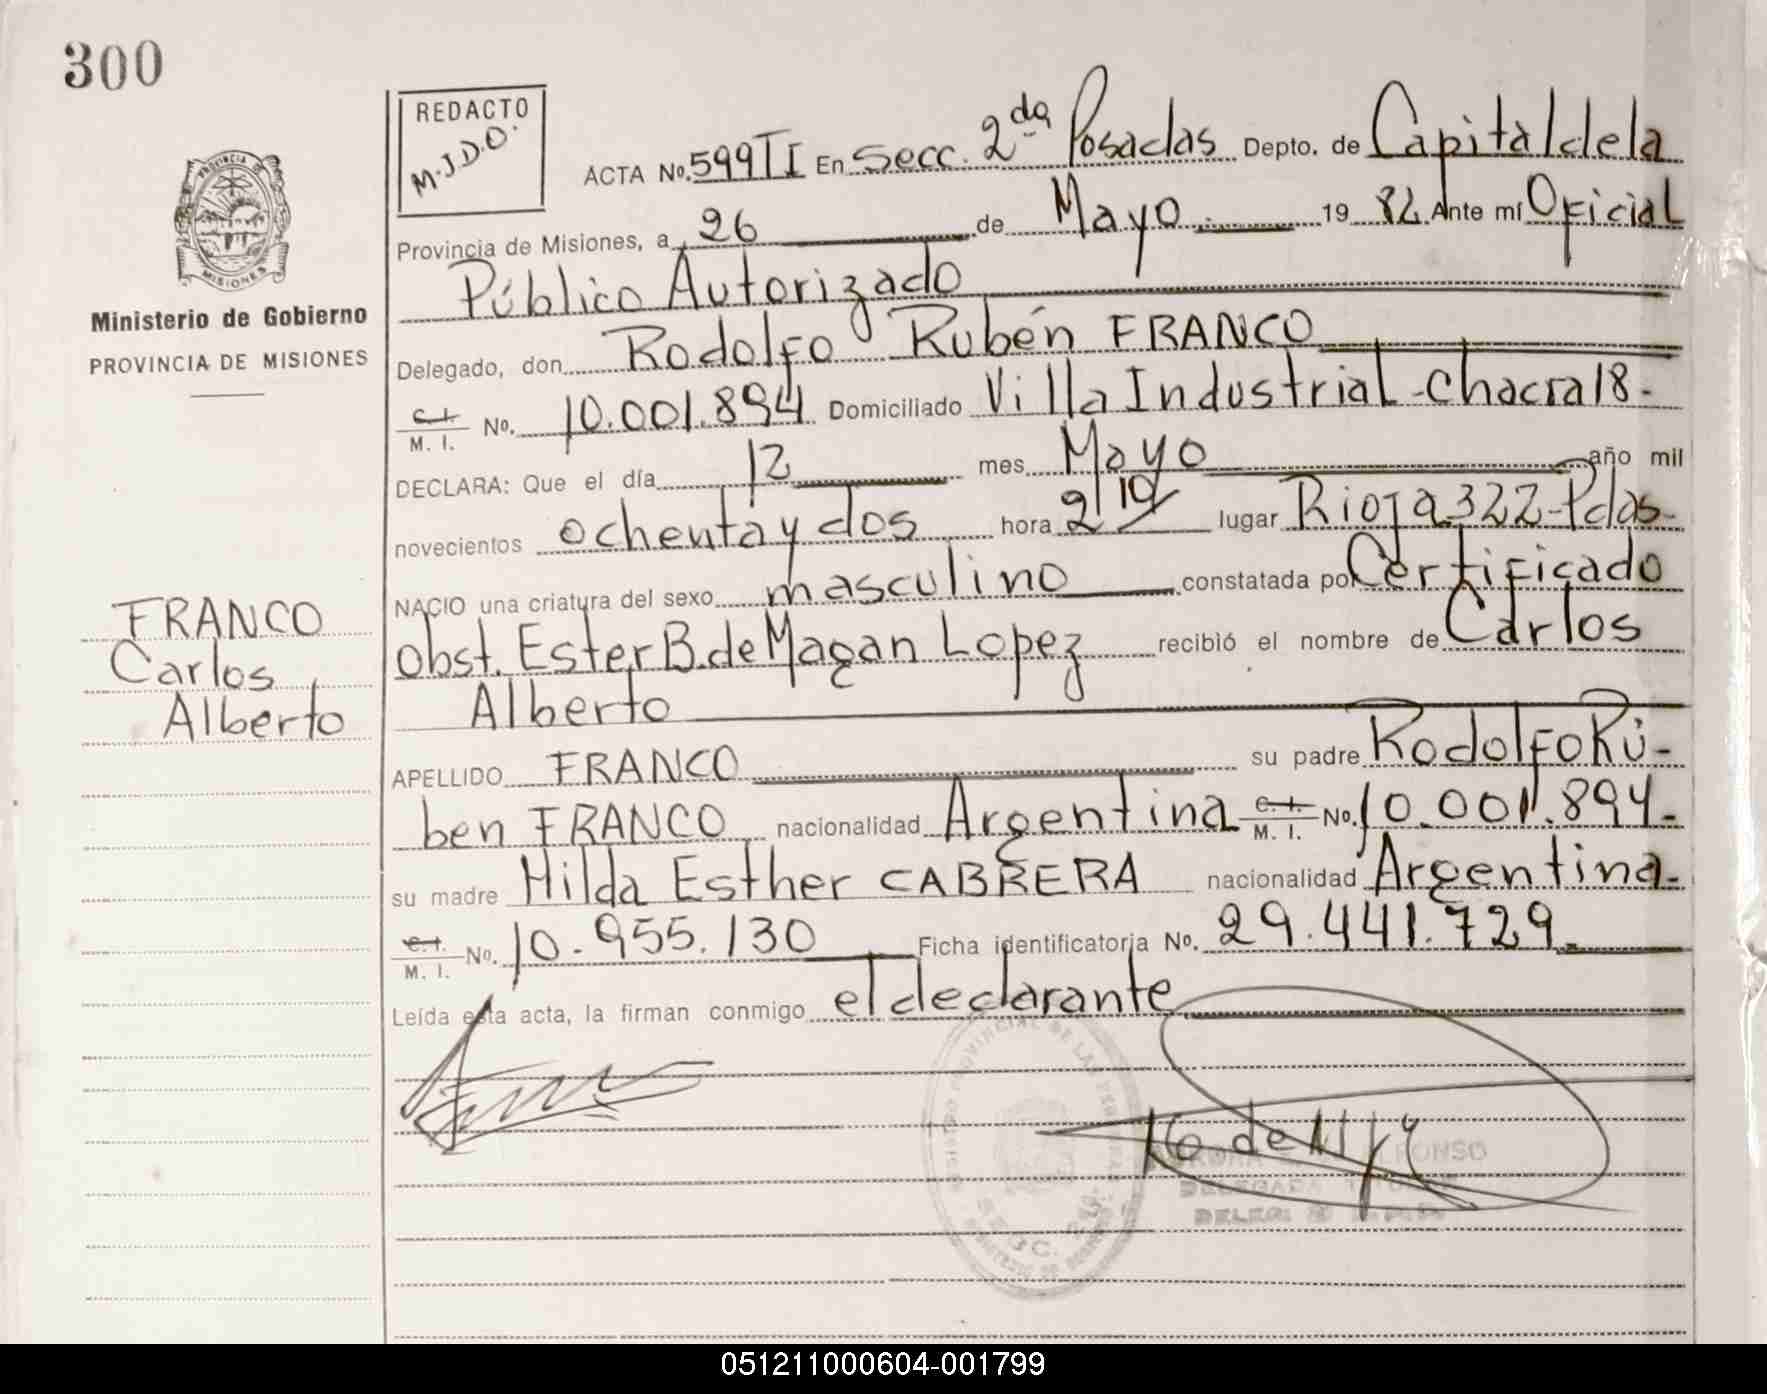 300
REDACTO
M.J.D.O.
ACTA No. 599 TI En Secc. 2da Posadas Depto. de Capital de la
Provincia de Misiones, a 26 de Mayo 19 82 Ante mí Oficial
Público Autorizado
PROVINCIA
MISIONES
Ministerio de Gobierno
PROVINCIA DE MISIONES
Delegado, don Rodolfo Rubén FRANCO
C. I. / M. I. No. 10.001.894 Domiciliado Villa Industrial - Chacra 18 -
DECLARA: Que el día 12 mes Mayo año mil
novecientos ochenta y dos hora 2/10/ lugar Rioja 322 - Pdas -
NACIO una criatura del sexo masculino constatada por Certificado
Obst. Ester B. de Magan Lopez recibió el nombre de Carlos
Alberto
FRANCO
Carlos
Alberto
APELLIDO FRANCO su padre Rodolfo Rú-
ben FRANCO nacionalidad Argentina C. I. / M. I. No. 10.001.894.-
su madre Hilda Esther CABRERA nacionalidad Argentina -
C. I. / M. I. No. 10.955.130 Ficha identificatoria No. 29.441.729.
Leída esta acta, la firman conmigo el declarante
051211000604-001799